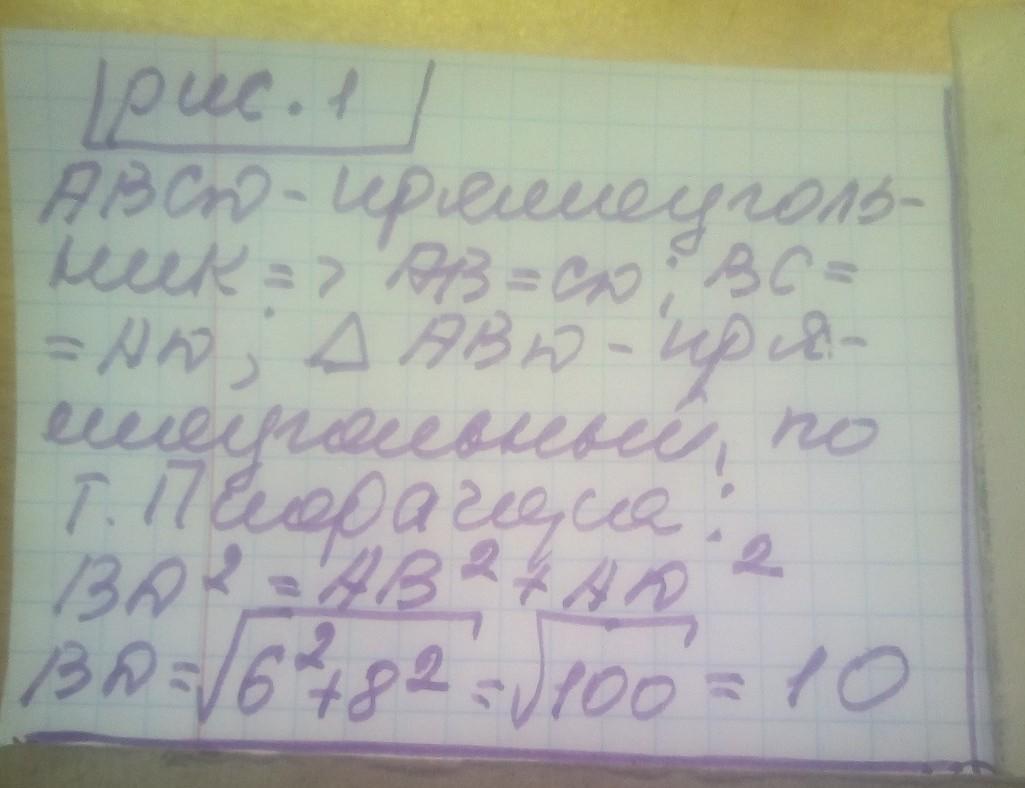 рис. 1
ABCD - прямоуголь-
ник => AB = CD; BC =
= AD; △ ABD - пря-
моугольный, по
Т. Пифагора:
BD² = AB² + AD²
BD = √6² + 8² = √100 = 10